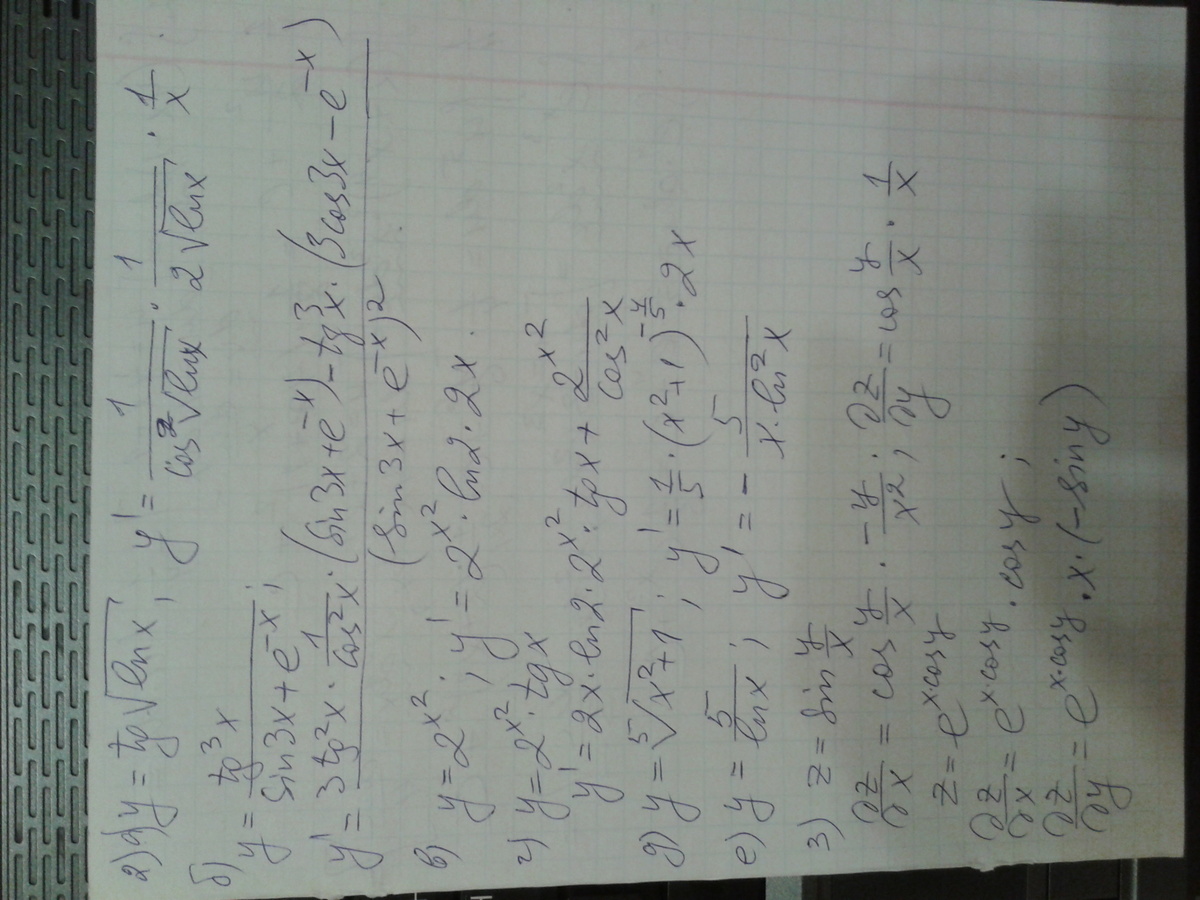 2) а) y = tg√(lnx), y' = 1/(cos²√(lnx)) · 1/(2√(lnx)) · 1/x.
б) y = tg³x/(sin3x + e^(-x));
y' = (3tg²x · 1/(cos²x) · (sin3x + e^(-x)) - tg³x · (3cos3x - e^(-x)))/(sin3x + e^(-x))²
в) y = 2^(x²); y' = 2^(x²) · ln2 · 2x.
г) y = 2^(x²) · tgx
y' = 2x · ln2 · 2^(x²) · tgx + 2^(x²)/(cos²x)
д) y = ⁵√(x²+1); y' = 1/5 · (x²+1)^(-4/5) · 2x
е) y = 5/(lnx); y' = - 5/(x · ln²x)
3) z = sin y/x
∂z/∂x = cos y/x · - y/x²; ∂z/∂y = cos y/x · 1/x
z = e^(x·cosy)
∂z/∂x = e^(x·cosy) · cosy;
∂z/∂y = e^(x·cosy) · x · (-siny)